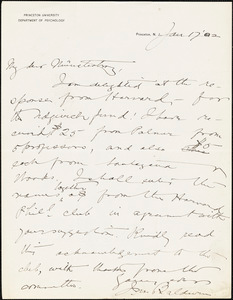 PRINCETON UNIVERSITY
DEPARTMENT OF PSYCHOLOGY
Princeton, N.J. Jan 17
My dear Münsterberg
I am delighted at the re-
sponses from Harvard, – for
the Sidgwick fund! I have re-
ceived $25 from Palmer from
5 professors, and also $5
each from Santayana and
Woods. I shall enter the
names together as from the Harvard
Phil. club in agreement with
your suggestion. Kindly read
this acknowledgement to the
club, with thanks from the
committee.
Yours